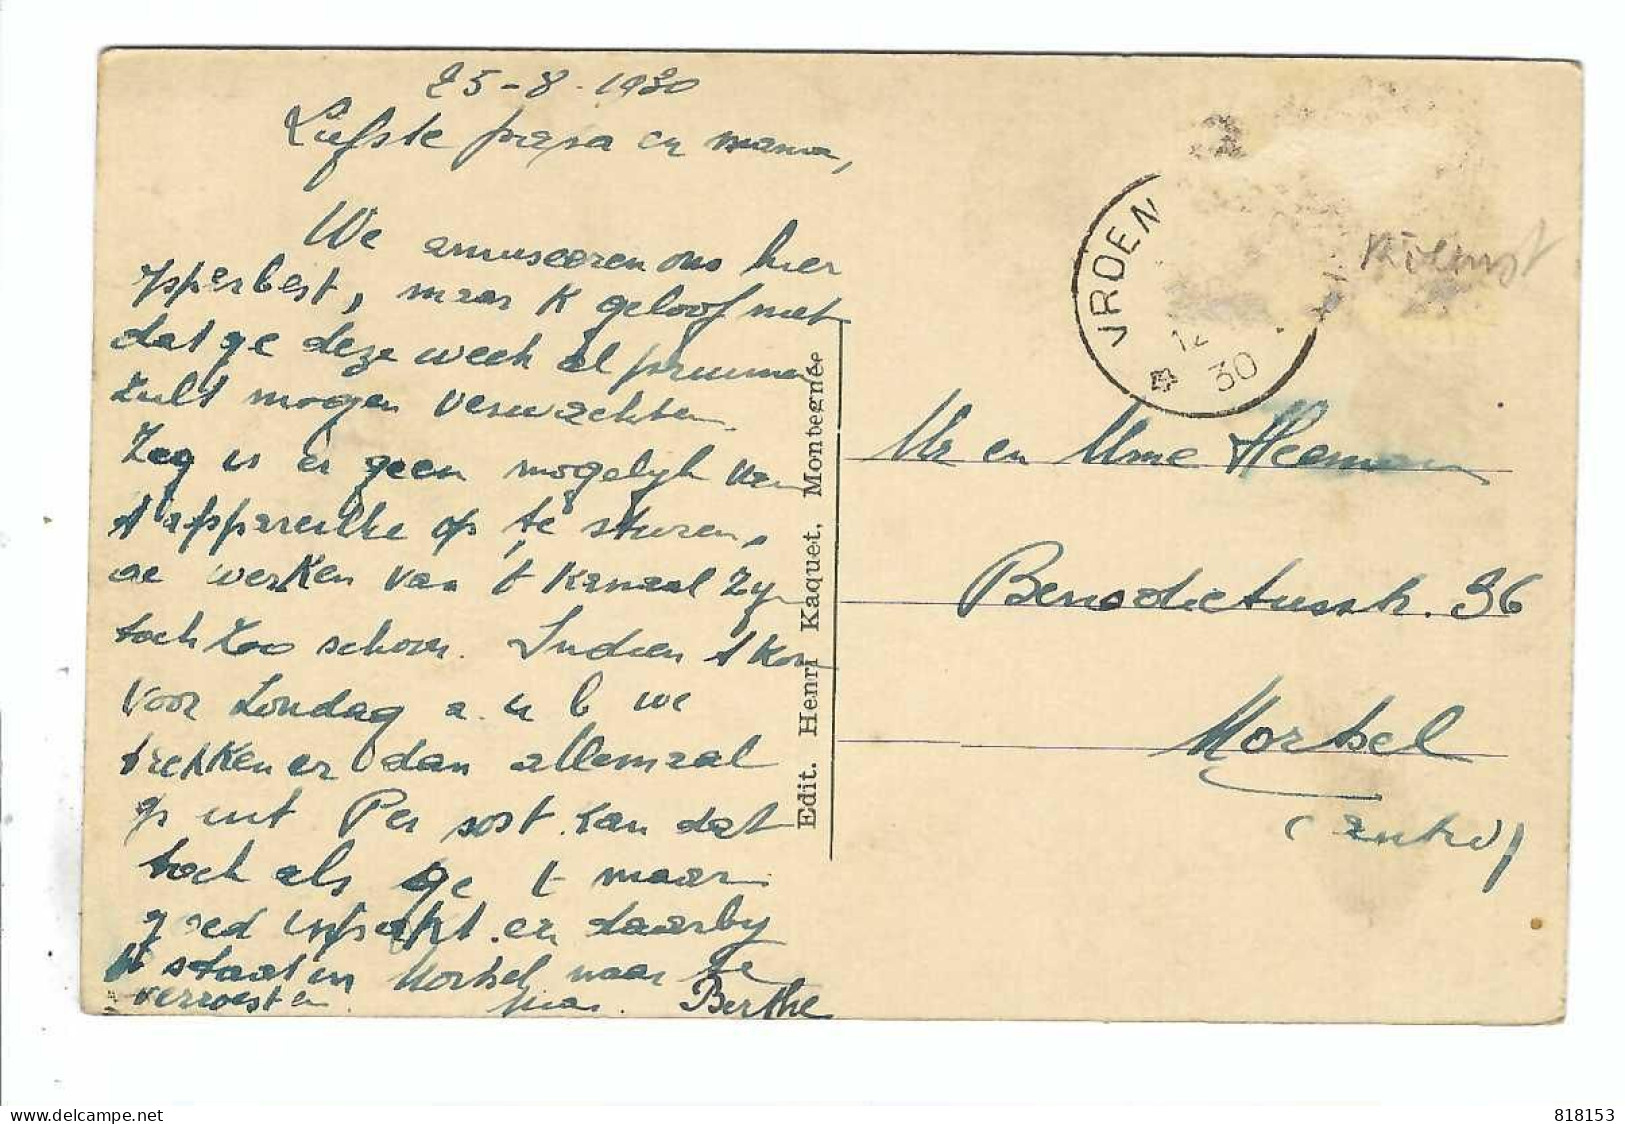 25-8-1930
Liefste papa en mama,
We amuseeren ons hier
opperbest, maar k geloof niet
dat ge deze week al pruimen
zult mogen verwachten.
Zeg is er geen mogelijk van
't appareilke op te sturen,
de werken van 't kanaal zijn
toch zoo schoon. Indien 't kon
voor Zondag a.u.b we
trekken er dan allemaal
op uit Per post kan dat
toch als ge t maar
goed inpakt en daarbij
t staat in Mortsel maar te
verroesten. Berthe
Edit. Henri Kaquet, Montegnée
VROEN
12
30
Mr en Mme Heeman
Benedictusstr. 36
Mortsel
818153